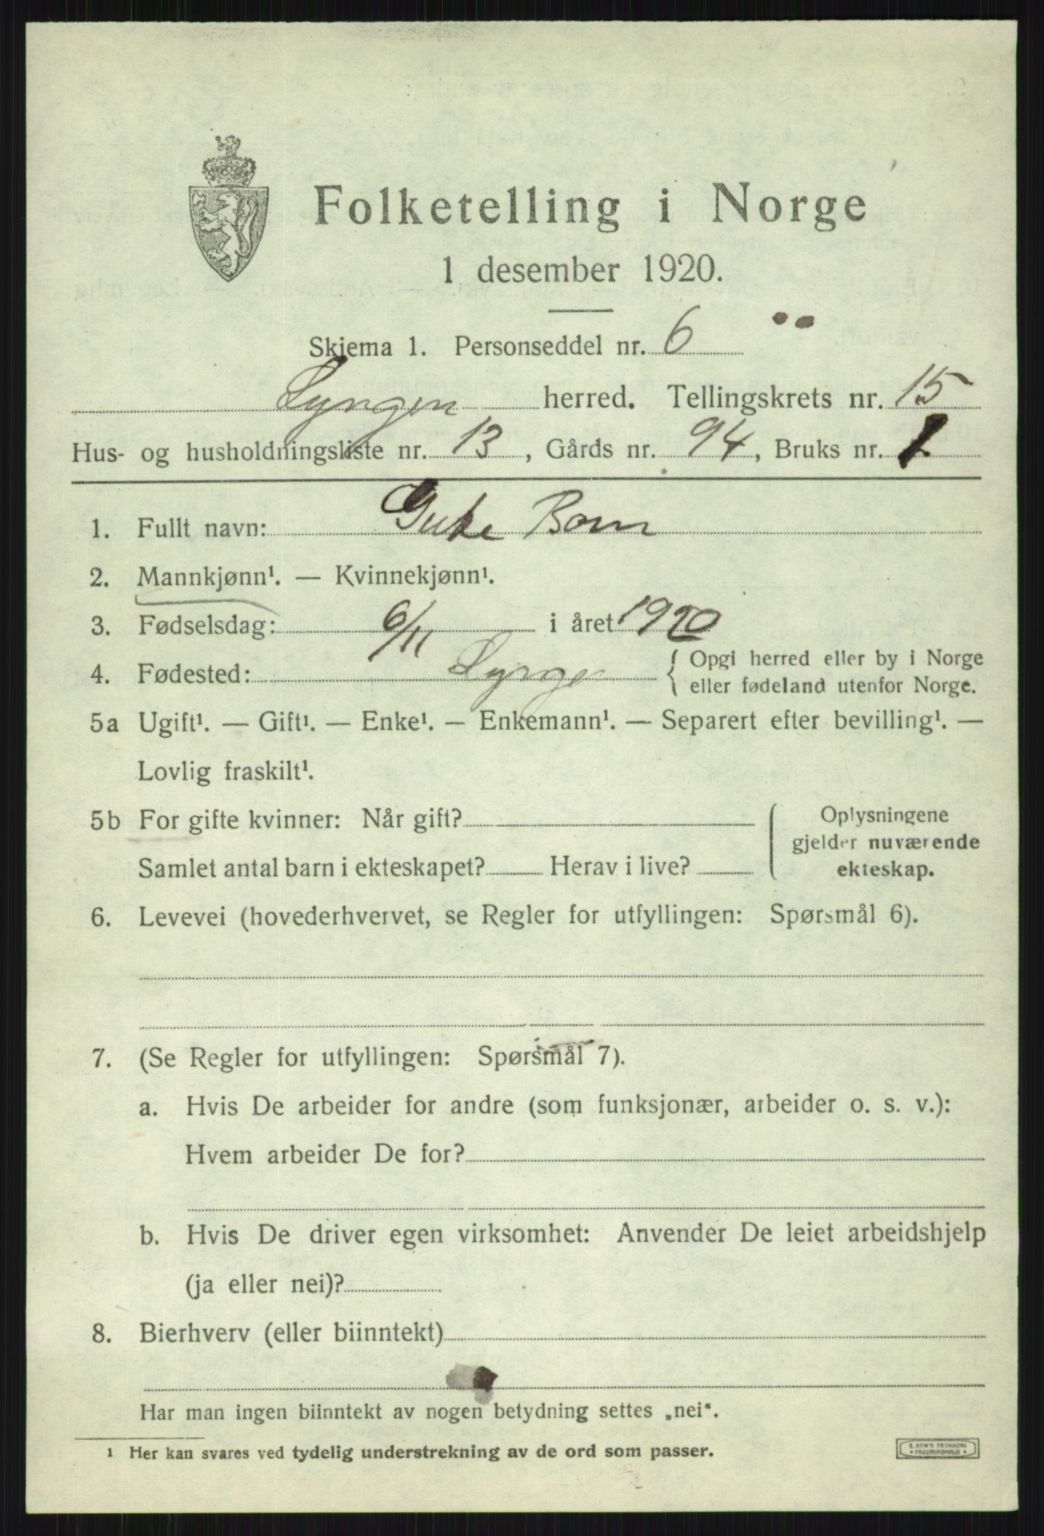 Folketelling i Norge
1 desember 1920.
Skjema 1. Personseddel nr. 6
Lyngen herred. Tellingskrets nr. 15
Hus- og husholdningsliste nr. 13, Gårds nr. 94, Bruks nr. 1
1. Fullt navn: Gutte Barn
2. Mannkjønn¹. — Kvinnekjønn¹.
3. Fødselsdag: 6/11 i året 1920
4. Fødested: Lyngen { Opgi herred eller by i Norge
eller fødeland utenfor Norge.
5a Ugift¹. — Gift¹. — Enke¹. — Enkemann¹. — Separert efter bevilling¹. —
Lovlig fraskilt¹.
5b For gifte kvinner: Når gift?
Samlet antal barn i ekteskapet? Herav i live?
Oplysningene
gjelder nuværende
ekteskap.
6. Levevei (hovederhvervet, se Regler for utfyllingen: Spørsmål 6).
7. (Se Regler for utfyllingen: Spørsmål 7).
a. Hvis De arbeider for andre (som funksjonær, arbeider o. s. v.):
Hvem arbeider De for?
b. Hvis De driver egen virksomhet: Anvender De leiet arbeidshjelp
(ja eller nei)?
8. Bierhverv (eller biinntekt)
Har man ingen biinntekt av nogen betydning settes „nei".
¹ Her kan svares ved tydelig understrekning av de ord som passer.